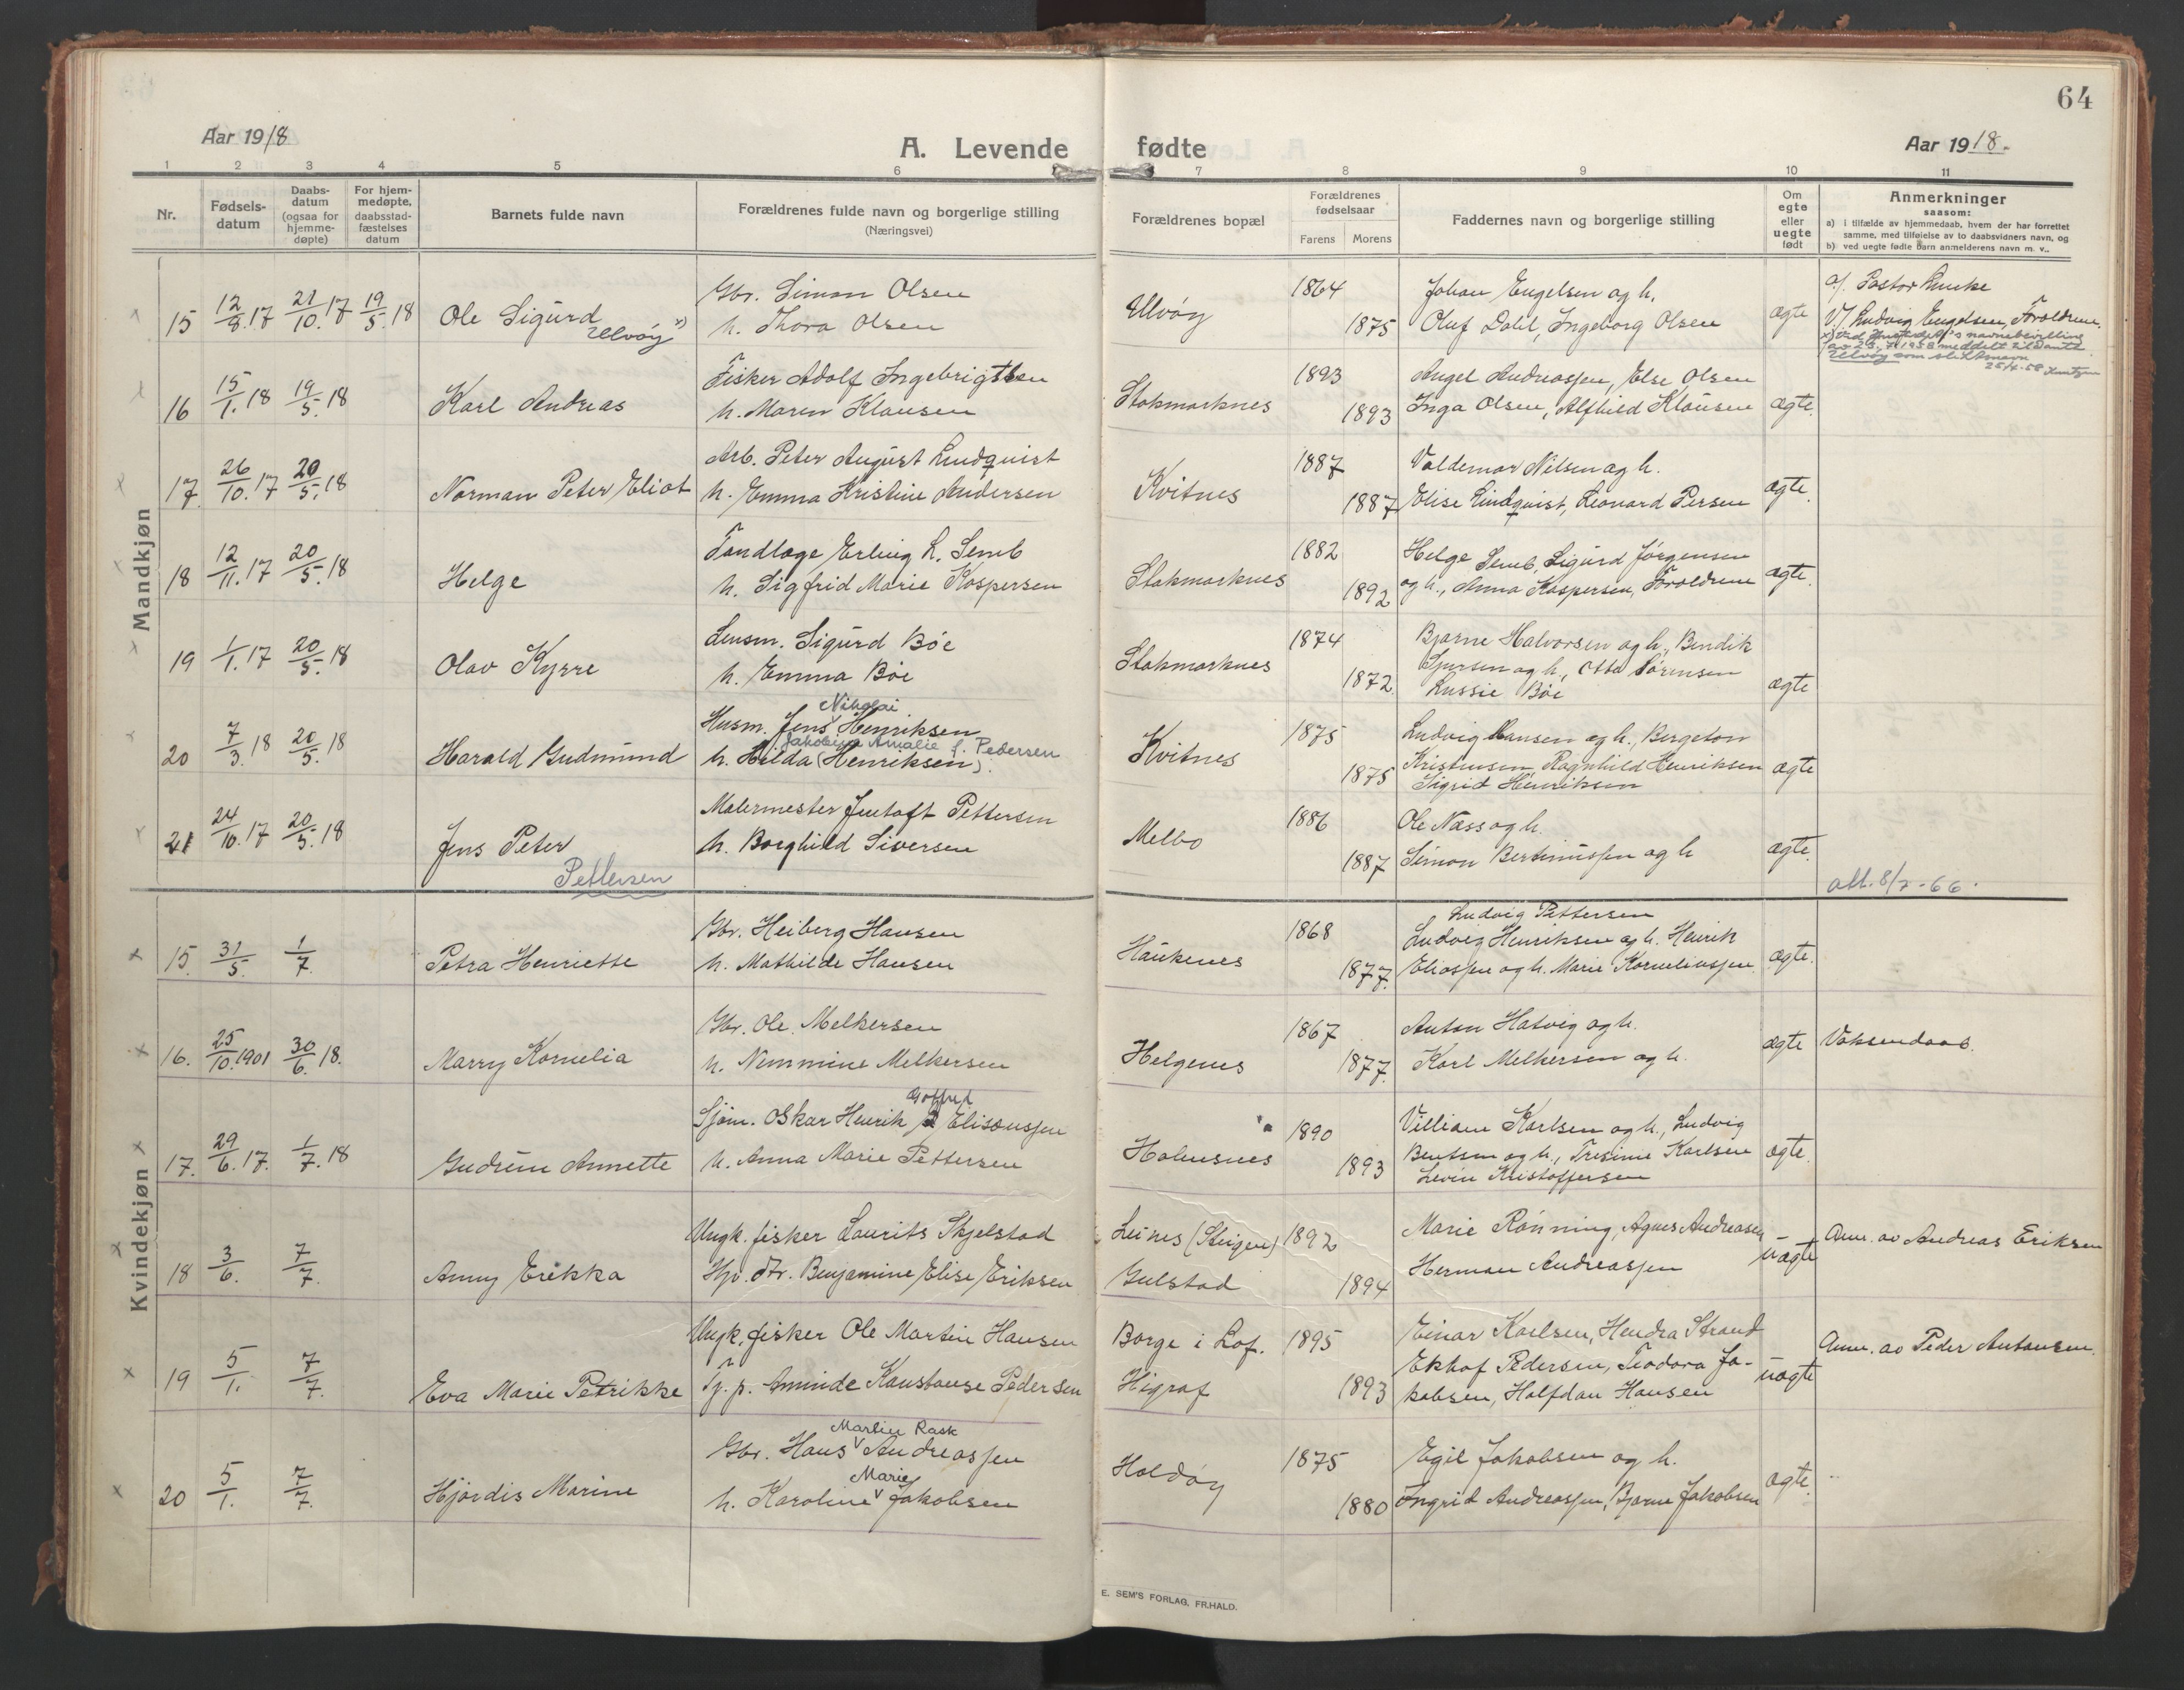 64
Aar 1918
A. Levende fødte
Aar 1918.
1 2 3 4 5 6 7 8 9 10 11
Nr.
Fødsels-
datum
Daabs-
datum
(ogsaa for
hjemme-
døpte)
For hjem-
medøpte,
daabsstad-
fæstelses
datum
Barnets fulde navn
Forældrenes fulde navn og borgerlige stilling
(Næringsvei)
Forældrenes bopæl
Forældrenes
fødselsaar
Farens Morens
Faddernes navn og borgerlige stilling
Om
egte
eller
uegte
født
Anmerkninger
saasom:
a) i tilfælde av hjemmedaab, hvem der har forrettet
samme, med tilføielse av to daabsvidners navn, og
b) ved uegte fødte barn anmelderens navn m. v..
Mandkjøn
15 12/8.17 21/10.17 19/5.18 Ole Sigurd Ulvøy x)
Gbr. Simon Olsen
h. Thora Olsen
Ulvøy 1864 1875
Johan Engelsen og h.
Oluf Dahl, Ingeborg Olsen
ægte
a/. Pastor
V/ Ludvig Engelsen, Forældrene.
Ulvøy som slektsnavn
16 15/1.18 19/5.18 Karl Andreas
Fisker Adolf Ingebrigtsen
h. Maren Klausen
Stokmarknes 1893 1893
Angel Andreassen, Else Olsen
Inga Olsen, Alfhild Klausen
ægte.
17. 26/10.17 20/5.18 Norman Peter Eliot
Arb. Peter August Lindquist
h. Emma Kristine Andersen
Kvitnes 1887 1887
Valdemar Nilsen og h.
Elise Lindquist, Leonard Persen
ægte.
18 12/11.17 20/5.18 Helge
Tandlæge Erling L. Semb
h. Sigfrid Marie Kaspersen
Stokmarknes 1882 1892
Helge Semb, Sigurd Jørgensen
og h., Anna Kaspersen, Forældrene
ægte.
19 1/1.17 20/5.18 Olav Kyrre
Lensm. Sigurd Bøe
h. Emma Bøe
Stokmarknes 1874 1872.
Bjarne Halvorsen og h., Bendik
og h., Otto Sørensen
Lussie Bøe
ægte
20 7/3.18 20/5.18 Harald Gudmund
Nikolai
Husm. Jens Henriksen
Jakobine Amalie f. Pedersen
h. Hilda (Henriksen).
Kvitnes 1875 1875
Ludvig Hansen og h., Bergeton
Kristensen, Ragnhild Henriksen
Sigrid Henriksen
ægte
21 24/10.17 20/5.18 Jens Peter
Pettersen
Malermester Jentoft Pettersen
h. Borghild Sivertsen
Melbo 1886 1887
Ole Næss og h.
Simon Bertinussen og h
ægte.
att. 8/7-66.
Kvindekjøn
15. 31/5. 1/7. Petra Henriette
Gbr. Heiberg Hansen
h. Mathilde Hansen
Haukenes 1868 1877.
Ludvig Pettersen
Ludvig Henriksen og h. Henrik
Eliassen og h. Marie Korneliussen
ægte.
16. 25/10.1901 30/6.18. Marry Kornelia
Gbr. Ole Melkersen
h. Nimmine Melkersen
Helgenes 1867 1877.
Anton Hatvig og h.
Karl Melkersen og h.
ægte
Voksendaab.
17. 29/6.17. 1/7.18 Gudrun Annette
Sjøm. Oskar Henrik Elisæussen
h. Anna Marie Pettersen
Holmsnes 1890 1893
Villiam Karlsen og h., Ludvig
Bentsen og h., Tresine Karlsen
Levin Kristoffersen
ægte.
18 3/6. 7/7. Anny Erikka
Ungk. fisker Laurits Skjelstad
Hjv. dtr. Benjamine Elise Eriksen
Leines (Steigen) 1892
Gulstad 1894
Marie Rønning, Agnes Andreasen
Herman Andreassen
uægte
Anm. av Andreas Eriksen
19 5/1. 7/7. Eva Marie Petrikke
Ungk. fisker Ole Martin Hansen
Tj. p. Aminde Konstanse Pedersen
Borge i Lof. 1895
Higraf 1893
Einar Karlsen, Hendra Strand
Ekhof Pedersen, Teodora Ja-
kobsen, Halfdan Hansen
uægte
Anm. av Peder Antonsen.
20 5/1. 7/7. Hjørdis Marine
Martin Rask
Gbr. Hans Andreassen
Marie
h. Karoline Jakobsen
Holdøy 1875 1880
Egil Jakobsen og h.
Ingrid Andreassen, Bjarne Jakobsen
ægte.
E. SEM'S FORLAG, FR.HALD.